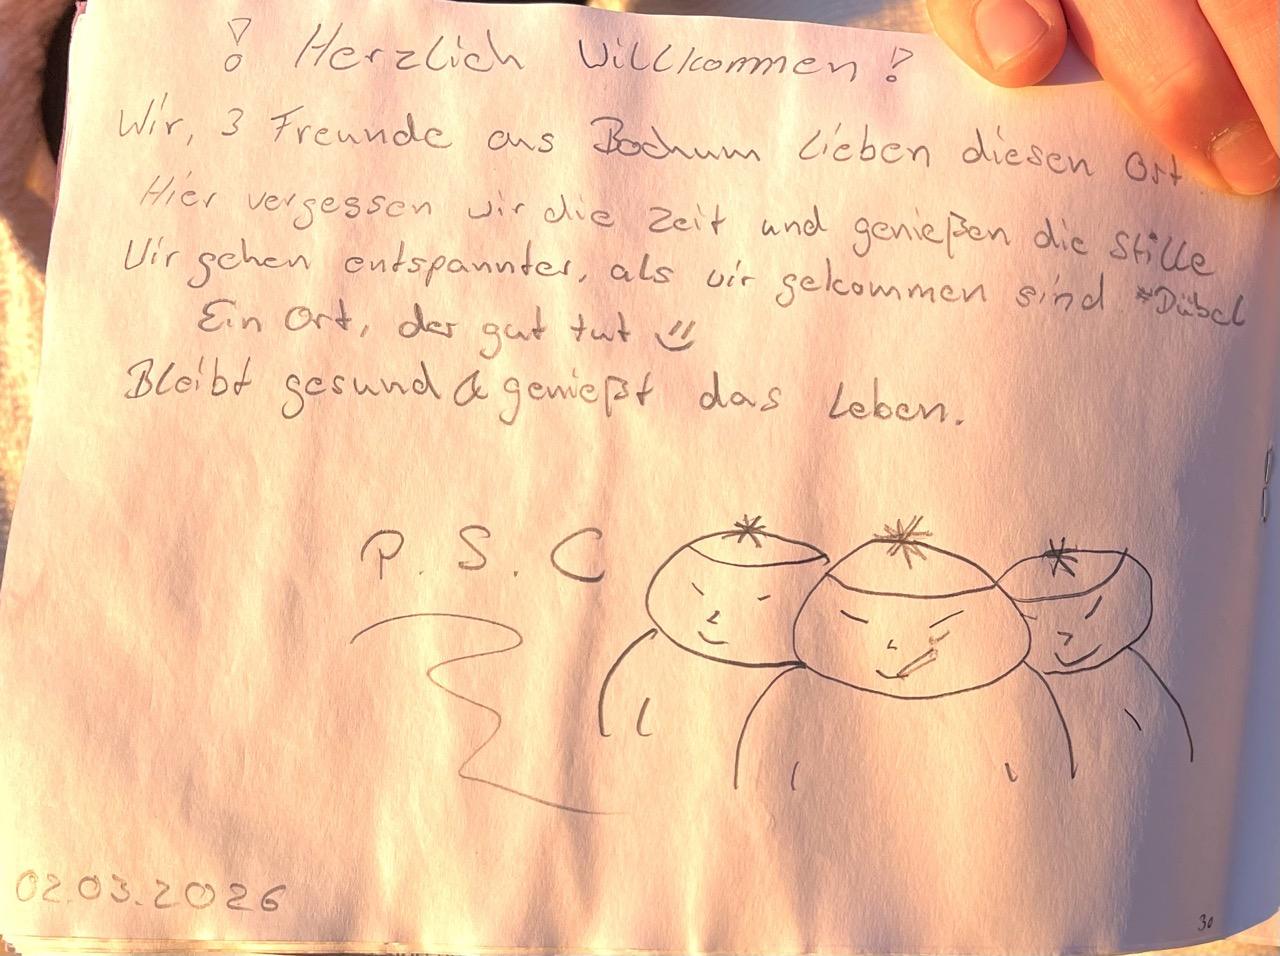 ! Herzlich Willkommen!
Wir, 3 Freunde aus Bochum lieben diesen Ort.
Hier vergessen wir die Zeit und genießen die Stille
Wir gehen entspannter, als wir gekommen sind #Dübel
Ein Ort, der gut tut
Bleibt gesund & genießt das Leben.
P. S. C
02.03.2026
30